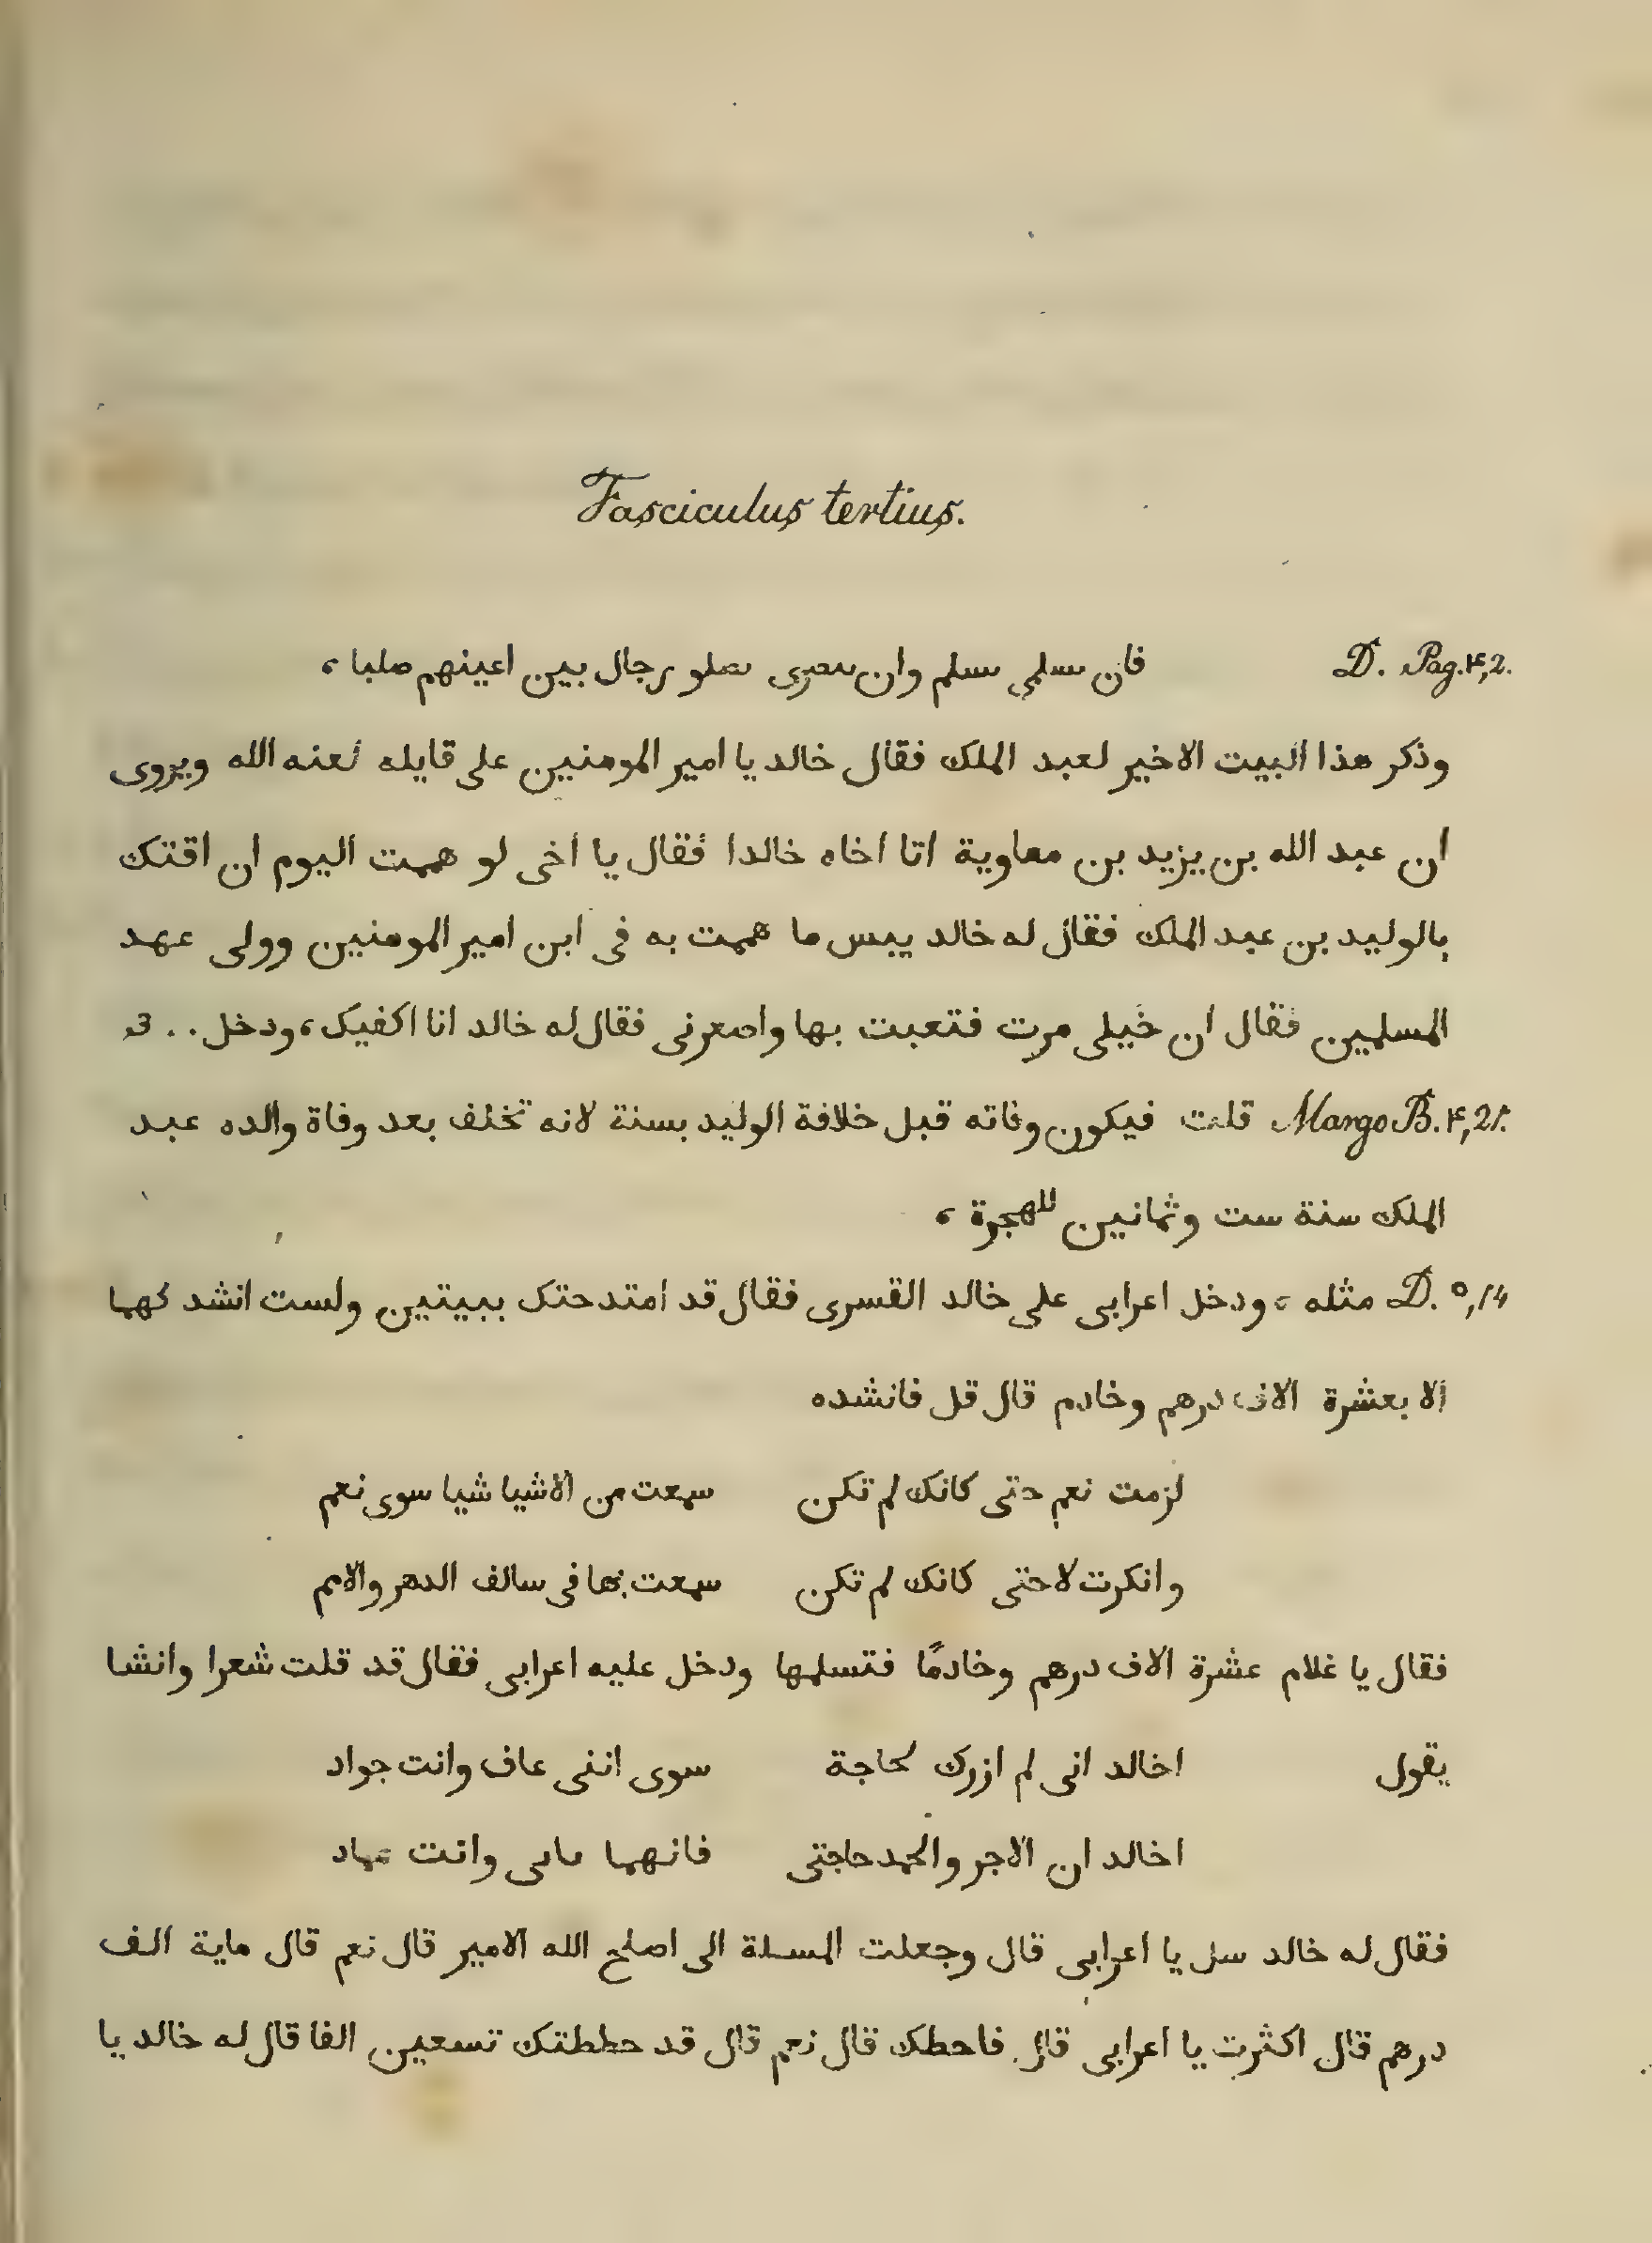 Fasciculus tertius.
D. Pag. ۴,2. فان سلمى سلم وان رجال بين اعينهم صلبا ،
وذكر هذا البيت الاخير لعبد الملك فقال خالد يا امير المومنين على قايله لعنه الله ويروى
ان عبد الله بن يزيد بن معاوية اتا اخاه خالدا فقال يا اخى لو هممت اليوم ان اقتك
بالوليد بن عبد الملك فقال له خالد يبس ما هممت به فى ابن امير المومنين وولى عهد
المسلمين فقال ان خيلى مرت فتعبت بها واصعرنى فقال له خالد انا اكفيك ، ودخل . .
Margo B. ۴,21. قلت فيكون وفاته قبل خلافة الوليد بسنة لانه تخلف بعد وفاة والده عبد
الملك سنة ست وثمانين للهجرة ،
D. ٥,14 مثله ، ودخل اعرابى على خالد القسرى فقال قد امتدحتك ببيتين ولست انشد كهما
الا بعشرة الاف درهم وخادم قال قل فانشده
لزمت نعم حتى كانك لم تكن سمعت من الاشيا شيا سوى نعم
وانكرت لا حتى كانك لم تكن سمعت بها فى سالف الدهر والامم
فقال يا غلام عشرة الاف درهم وخادمًا فتسلمها ودخل عليه اعرابى فقال قد قلت شعرا وانشا
يقول اخالد انى لم ازرك لحاجة سوى اننى عاف وانت جواد
اخالد ان الاجر والحمد حاجتى فانهما وانت عماد
فقال له خالد سل يا اعرابى قال وجعلت المسلة الى اصلح الله الامير قال نعم قال ماية الف
درهم قال اكثرت يا اعرابى قال فاحطك قال نعم قال قد حططتك تسعين الفا قال له خالد يا